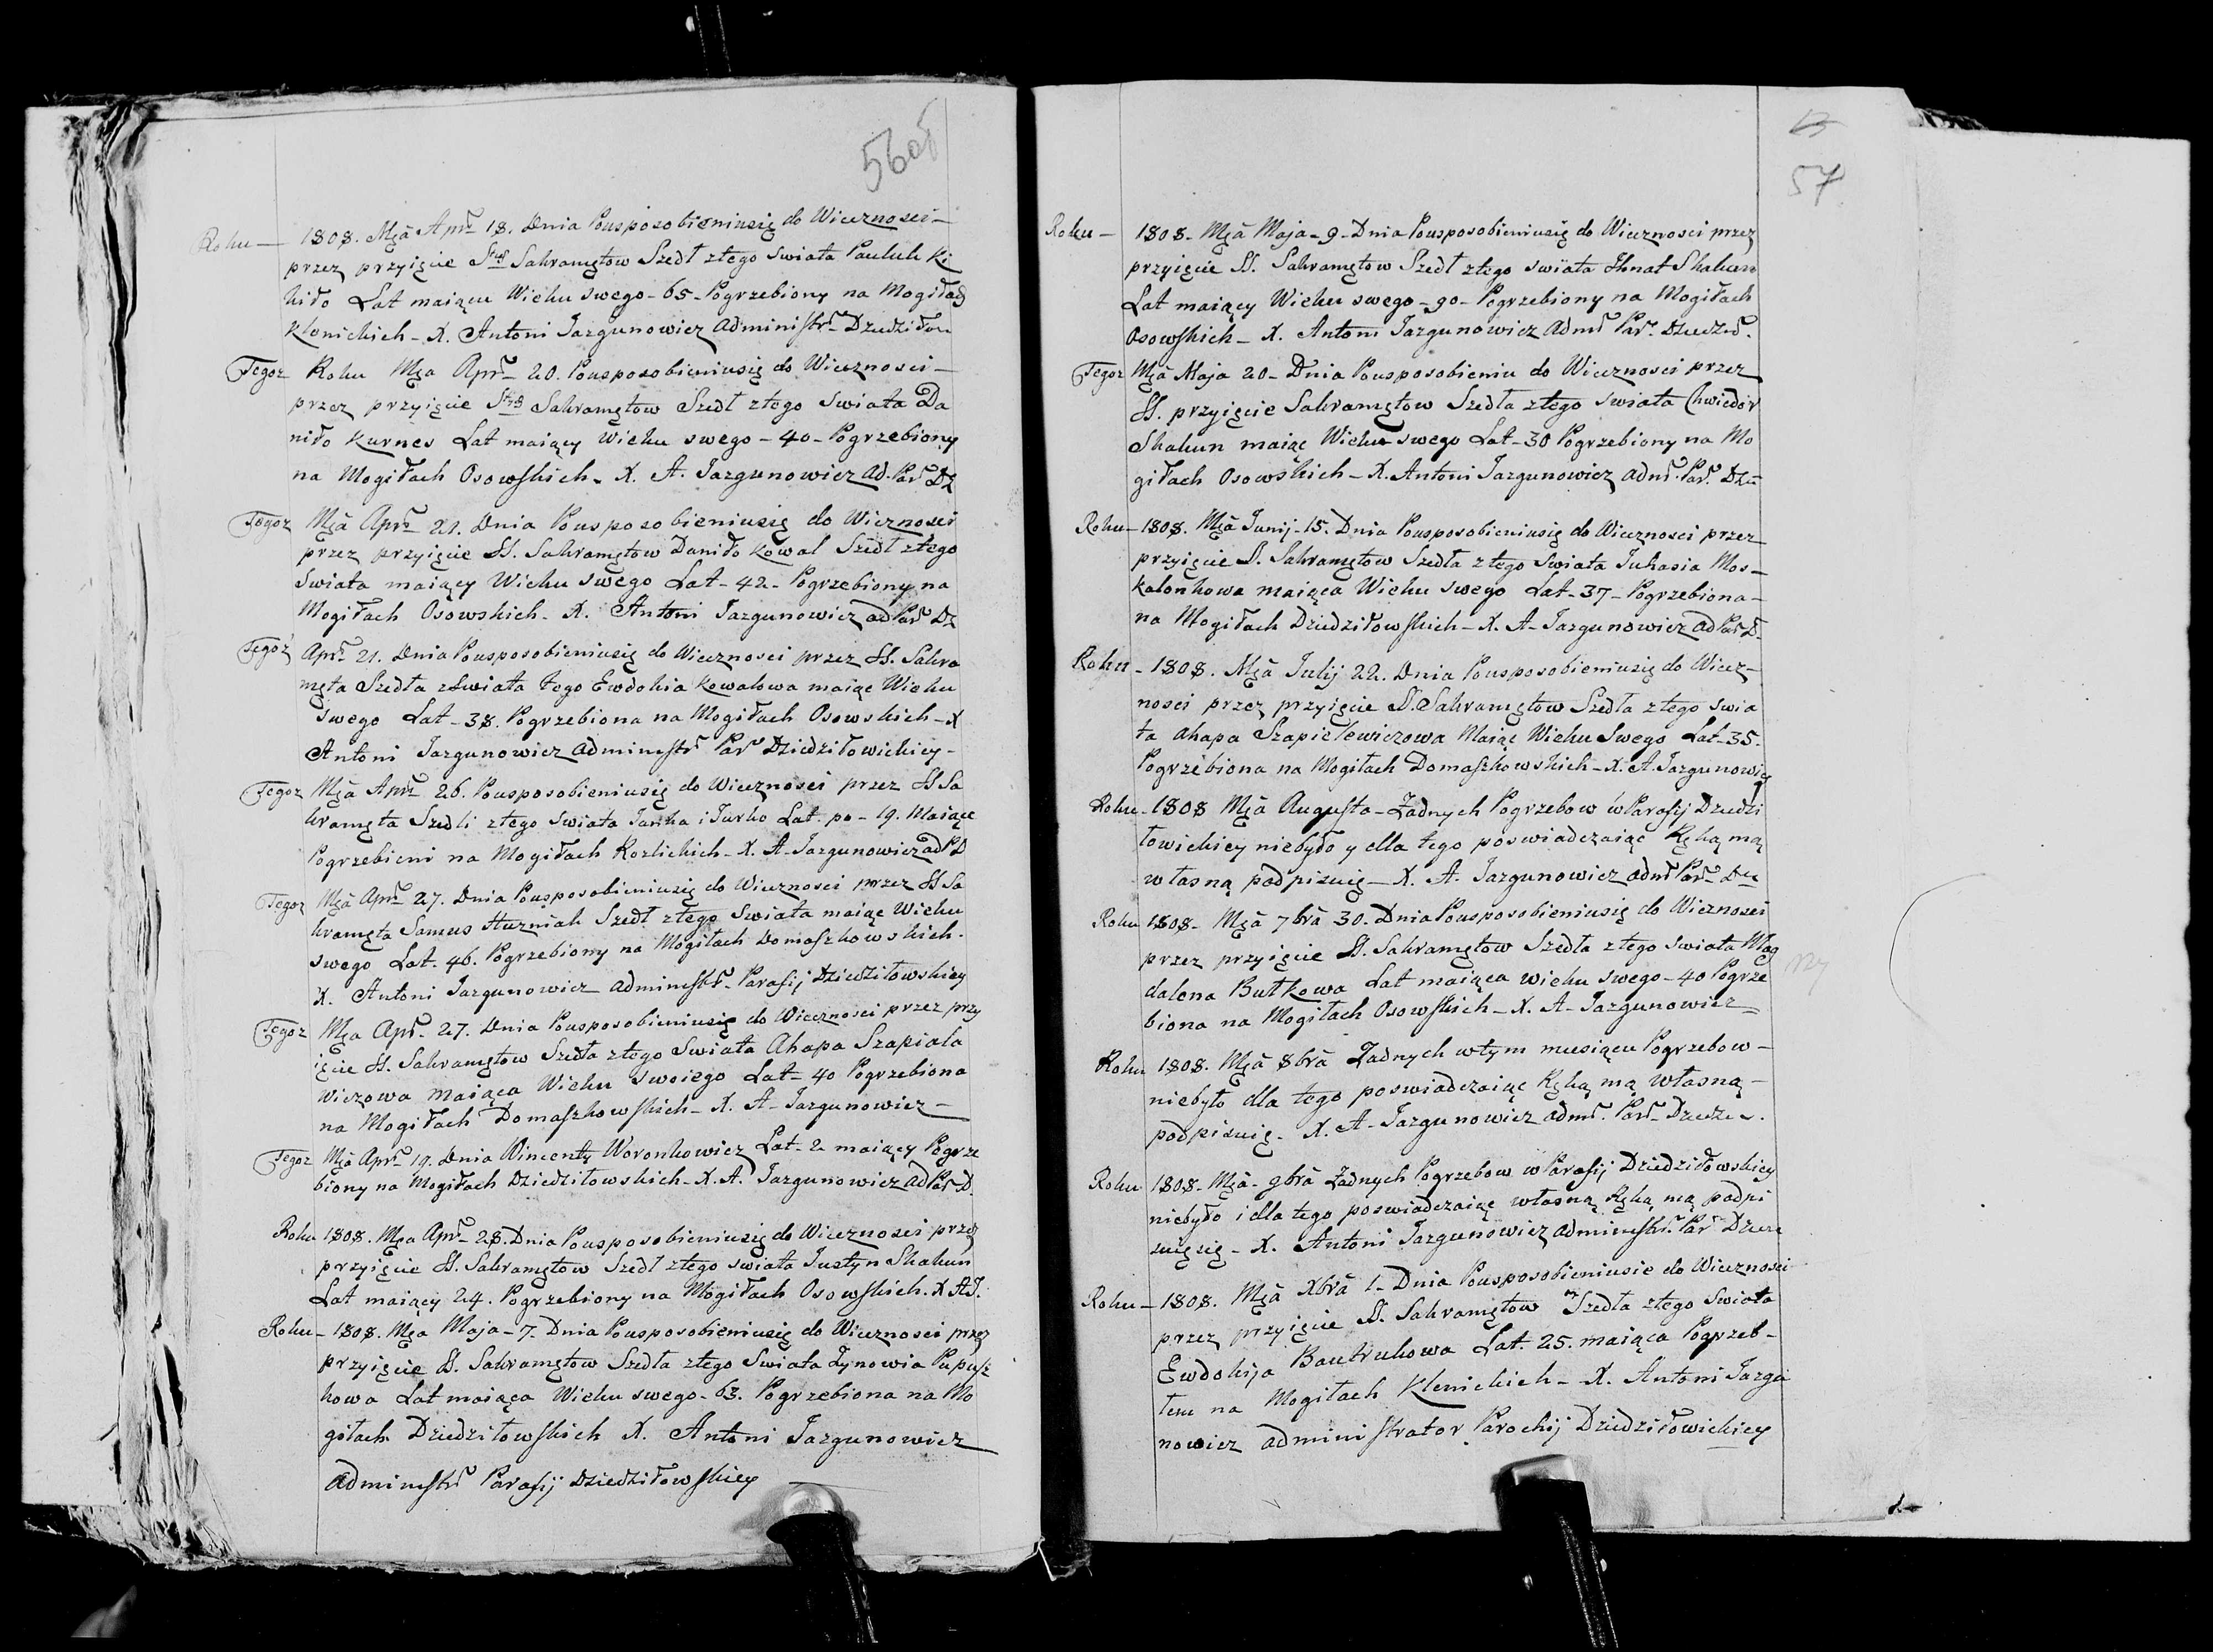 560б
Roku — 1808. Mçâ Aprl 18. Dnia Pousposobieniusię do Wiecznosci —
przez przyięcie Stych Sakramętow Szedł ztego Swiata Pauluk Ki
kiło Lat maiącu Wieku swego - 65 - Pogrzebiony na Mogiłach
Klonickich - X. Antoni Jazgunowicz Administr Dziedziłow
Tegoz Roku Mça Aprl 20. Pousposobieniusię do Wiecznosci —
przez przyięcie Stych Sakramętow Szedł ztego Swiata Da
niło Kurnes Lat maiący Wieku swego - 40 - Pogrzebiony
na Mogiłach Osowskich - X. A. Jazgunowicz Ad. Par Dz
Tegoz Mçâ Aprl 21. Dnia Pousposobieniusię do Wicznosci
przez przyięcie SS. Sakramętow Daniło Kowal Szedł ztego
Swiata maiący Wieku swego Lat - 42 - Pogrzebiony na
Mogiłach Osowskich - X. Antoni Jazgunowicz ad Par Dz
Tegoz Aprl 21. Dnia Pousposobieniusię do Wiecznosci przez SS. Sakra
męta Szedła zSwiata tego Ewdokia Kowalowa maiąc Wieku
swego Lat - 38. Pogrzebiona na Mogiłach Osowskich - X
Antoni Jazgunowicz Administr Par Dziedziłowickiey -
Tegoz Mçâ Aprl 26. Pousposobieniusię do Wiecznosci przez SS Sa
kramęta Szedli ztego Swiata Janka i Jurko Lat po - 19. Maiące
Pogrzebieni na Mogiłach Kozlickich - X. A. Jazgunowicz ad P D
Tegoz Mçâ Aprl 27. Dnia Pousposobieniusię do Wiecznosci przez SS Sa
kramęta Samus Huzniak Szedł ztego Swiata maiąc Wieku
swego Lat. 46. Pogrzebiony na Mogiłach Domaszkowskich.
X. Antoni Jazgunowicz Administr. Parafij Dziedziłowskiey
Tegoz Mça Aprl 27. Dnia Pousposobieniusię do Wiecznosci przez przy
ięcie SS. Sakramętow Szedła ztego Swiata Ahapa Szapiala
wiczowa Maiąca Wieku Swoiego Lat - 40 Pogrzebiona
na Mogiłach Domaszkowskich - X. A. Jazgunowicz —
Tegoz Mçâ Aprl 19. Dnia Wincenty Woronkowicz Lat. 2 maiący Pogrze
biony na Mogiłach Dziedziłowskich - X. A. Jazgunowicz ad Par D.
Roku 1808. Mça Aprl - 28. Dnia Pousposobieniusię do Wiecznosci przez
przyięcie SS. Sakramętow Szedł ztego swiata Justyn Skakun
Lat maiący 24. Pogrzebiony na Mogiłach Osowskich. X AJ.
Roku - 1808. Mça Maja - 7. Dnia Pousposobieniusię do Wiecznosci przez
przyięcie SS. Sakramętow Szedła ztego Swiata Zynowia Papusz
kowa Lat maiąca Wieku swego - 63. Pogrzebiona na Mo
giłach Dziedziłowskich X. Antoni Jazgunowicz
Administr Parafij Dziedziłowskiey
57
Roku - 1808 - Mçâ Maja - 9 - Dnia Pousposobieniusię do Wiecznosci przez
przyięcie SS. Sakramętow Szedł ztego swiata Ihnat Skakun
Lat maiący Wieku swego - 90 - Pogrzebiony na Mogiłach
Osowskich - X. Antoni Jazgunowicz Adm Par. Dziedził.
Tegoz Mçâ Maja 20 - Dnia Pousposobieniu do Wiecznosci przez
SS. przyięcie Sakramętow Szedła ztego swiata Chwiedor
Skakun maiąc Wieku swego Lat - 30 Pogrzebiony na Mo
giłach Osowskich - X. Antoni Jazgunowicz Adm. Par. Dzie
Roku - 1808. Mçâ Junij - 15. Dnia Pousposobieniusię do Wiecznosci przez
przyięcie S. Sakramętow Szedła ztego Swiata Juhasia Mos -
kalonkowa maiąca Wieku swego Lat - 37 - Pogrzebiona -
na Mogiłach Dziedziłowskich - X. A. Jazgunowicz ad Par D.
Roku - 1808. Mçâ Julij 22. Dnia Pousposobieniusię do Wiecz -
nosci przez przyięcie S. Sakramętow Szedła ztego swia
ta Ahapa Szapielewiczowa Maiąc Wieku Swego Lat - 35.
Pogrzebiona na Mogiłach Domaszkowskich - X. A. Jazgunowicz
Roku - 1808 Mçâ Augusta - Żadnych Pogrzebow w Parafij Dziedzi
łowickiey niebyło y dla tego poswiadczaiąc Ręką mą
własną podpisuię — X. A. Jazgunowicz adm Par Dzie
Roku 1808 - Mçâ 7brâ 30. Dnia Pousposobieniusię do Wicznosci
przez przyięcie SS. Sakramętow Szedła ztego swiata Mag
dalena Butkowa Lat maiąca wieku swego - 40 Pogrze
biona na Mogiłach Osowskich - X. A. Jazgunowicz
Roku 1808. Mçâ 8brâ Żadnych wtym miesiącu Pogrzebow -
niebyło dla tego poswiadczaiąc Ręką mą własną -
podpisuię - X. A. Jazgunowicz adm. Par. Dziedz.
Roku 1808 - Mçâ - 9brâ Żadnych Pogrzebow w Parafij Dziedziłowskiey
niebyło i dla tego poswiadczaiąc własną Ręką mą podpi
suię się - X. Antoni Jazgunowicz Administr. Par Dzied
Roku - 1808. Mçâ Xbrâ 1 - Dnia Pousposobieniusie do Wiecznosci
przez przyięcie S. Sakramętow Szedła ztego Swiata
Ewdokija Bautrukowa Lat. 25. maiąca Pogrzeb -
tem na Mogiłach Klenickich - X. Antoni Jazgu
nowicz Administrator Parochij Dziedziłowickiey